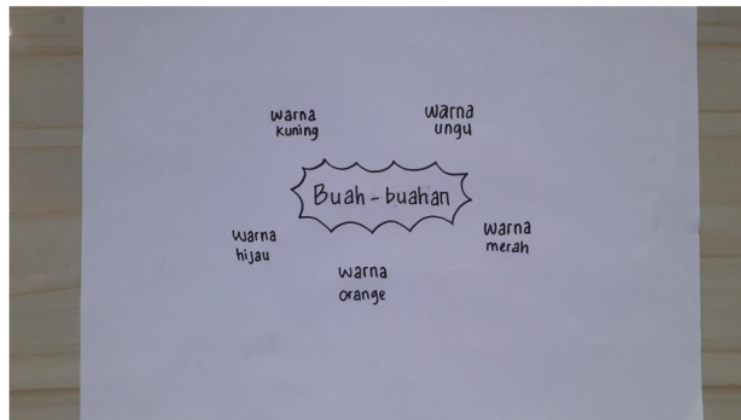 Warna
Kuning
Warna
ungu
Buah-buahan
Warna
hijau
Warna
merah
Warna
orange